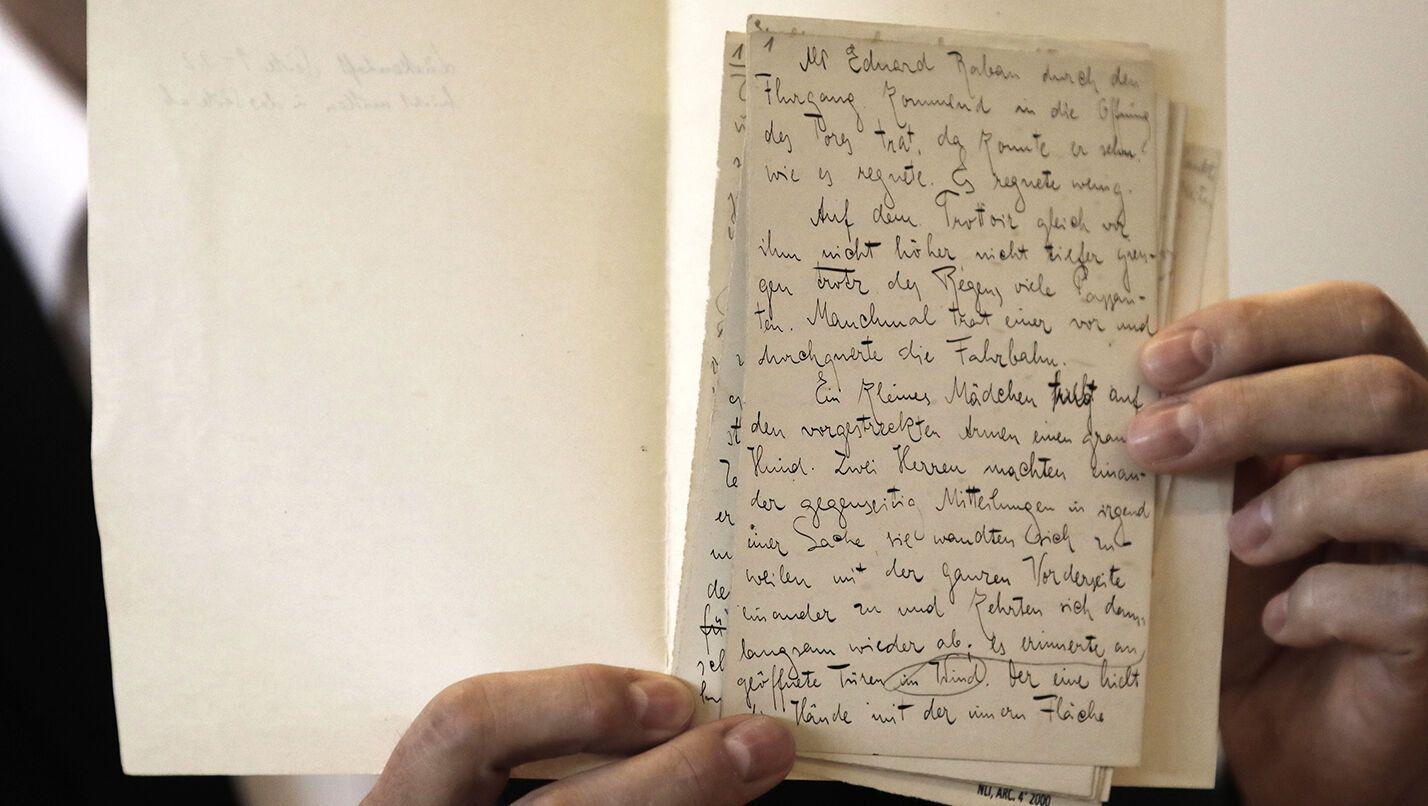 1
Als Eduard Raban durch den
Flurgang kommend in die Öffnung
des Tores trat, da konnte er sehn
wie es regnete. Es regnete wenig.
Auf dem Trottoir gleich vor
ihm nicht höher nicht tiefer gien-
gen trotz des Regens viele Passan-
ten. Manchmal trat einer vor und
durchquerte die Fahrbahn.
Ein kleines Mädchen auf
den vorgestreckten Armen einen grauen
Hund. Zwei Herren machten einan-
der gegenseitig Mitteilungen in irgend
einer Sache, sie wandten sich zu-
weilen mit der ganzen Vorderseite
einander zu und kehrten sich dann
langsam wieder ab. Es erinnerte an
geöffnete Türen im Wind. Der eine hielt
Hände mit der innern Fläche
1
st
er
de
für
sch
NLI, ARC. 4° 2000